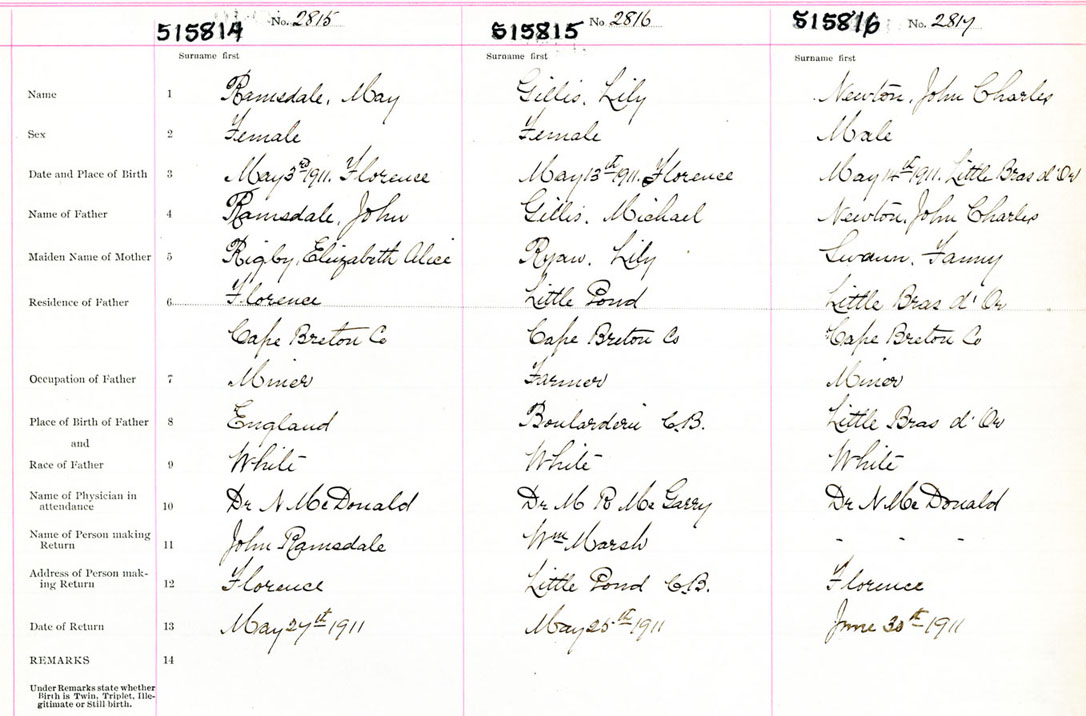 515814 No. 2815 515815 No. 2816 515816 No. 2817
Surname first Surname first Surname first
Name 1 Ramsdale, May Gillis, Lily Newton, John Charles
Sex 2 Female Female Male
Date and Place of Birth 3 May 3rd 1911. Florence May 13th 1911. Florence May 14th 1911. Little Bras d'Or
Name of Father 4 Ramsdale, John Gillis, Michael Newton, John Charles
Maiden Name of Mother 5 Rigby, Elizabeth Alice Ryan, Lily Fanny
Residence of Father 6 Florence Little Pond Little Bras d'Or
Cape Breton Co Cape Breton Co Cape Breton Co
Occupation of Father 7 Miner Farmer Miner
Place of Birth of Father 8 England Boularderie C.B. Little Bras d'Or
and
Race of Father 9 White White White
Name of Physician in
attendance 10 Dr N McDonald Dr M R McGarry Dr N McDonald
Name of Person making
Return 11 John Ramsdale Wm Marsh - - -
Address of Person mak-
ing Return 12 Florence Little Pond C.B. Florence
Date of Return 13 May 27th 1911 May 25th 1911 June 30th 1911
REMARKS 14
Under Remarks state whether
Birth is Twin, Triplet, Ille-
gitimate or Still birth.